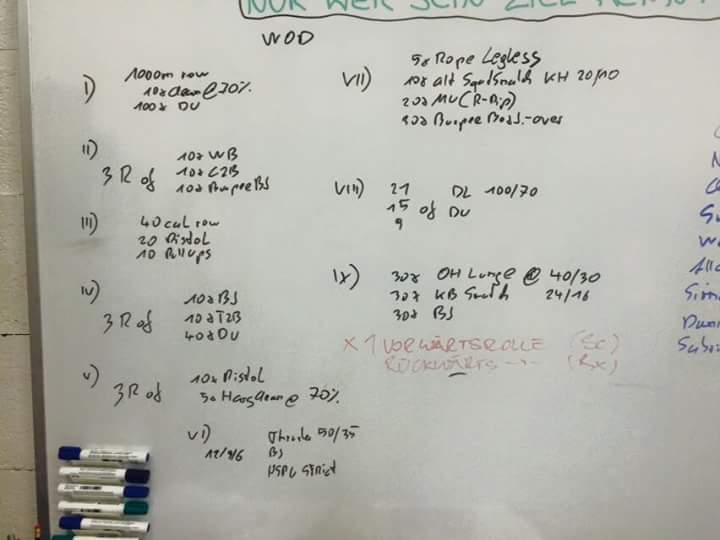 NUR WER SEIN ZIEL KENNT
WOD
I)
1000m row
10x Clean @ 70%
100x DU
II)
3 R of
10x WB
10x C2B
10x Burpee BJ
III)
40 cal row
20 Pistol
10 Pull ups
IV)
3 R of
10x BJ
10x T2B
40x DU
V)
3 R of
10x Pistol
5x Hang Clean @ 70%
VI)
12/9/6
Thruster 50/35
BJ
HSPU Strict
VII)
5x Rope Legless
10x alt Snatch KH 20/10
20x MU (R-Dip)
Burpee -over
VIII)
21
15 of
9
DL 100/70
DU
IX)
30x OH Lunge @ 40/30
30x KB Snatch 24/16
30x BJ
x 1 VORWÄRTSROLLE (Sc)
RÜCKWÄRTS -"- (Rx)